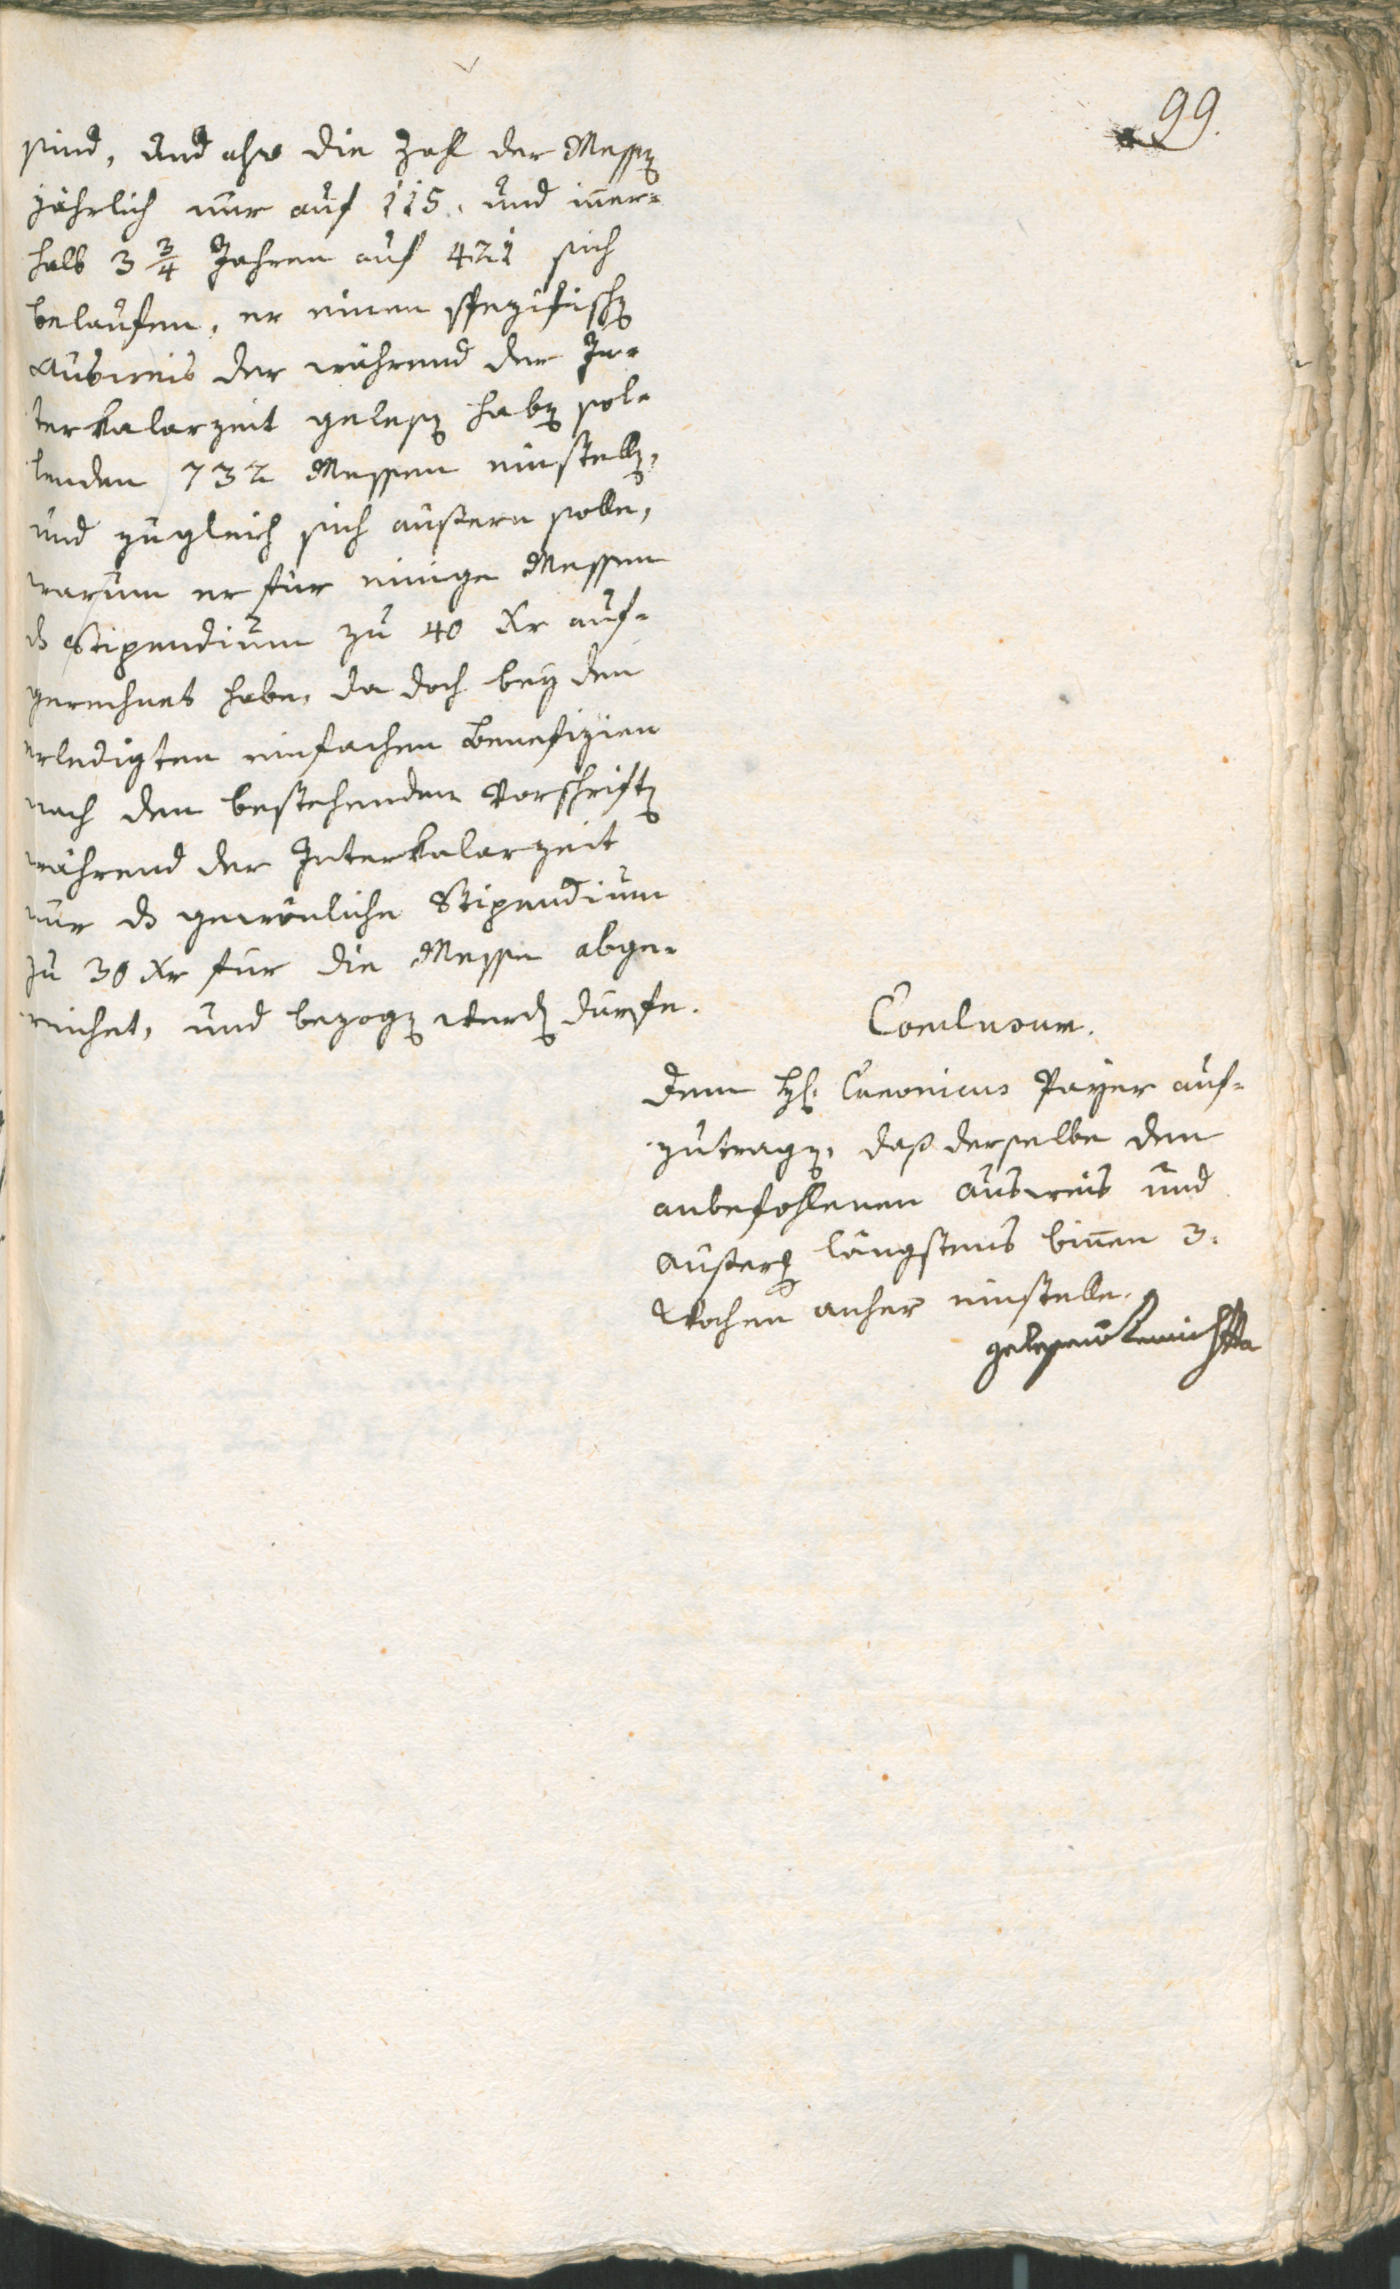 99.
sind, und also die Zahl der Messen
jährlich nur auf 115. und iner=
halb 3 3/4 Jahren auf 421 sich
belaufen, er einen spezifischen
Ausweis der während der In=
terkalarzeit gelesen haben sol=
lenden 732 Messen einstellen,
und zugleich sich äußern solle,
warum er für einige Messen
ds Stipendium zu 40 Xr auf=
gerechnet habe, da doch bey den
erledigten einfachen Benefizien
nach den bestehenden Vorschriften
während der Interkalarzeit
nur ds gewönliche Stipendium
zu 30 Xr für die Messe abge=
reichet, und bezogen werden dürfe.
Conclusum.
Dem H. Canonicus Payer auf=
zutragen, daß derselbe den
anbefohlenen Ausweis und
Äußerung längstens binen 3.
Wochen anher einstelle.
gelesen